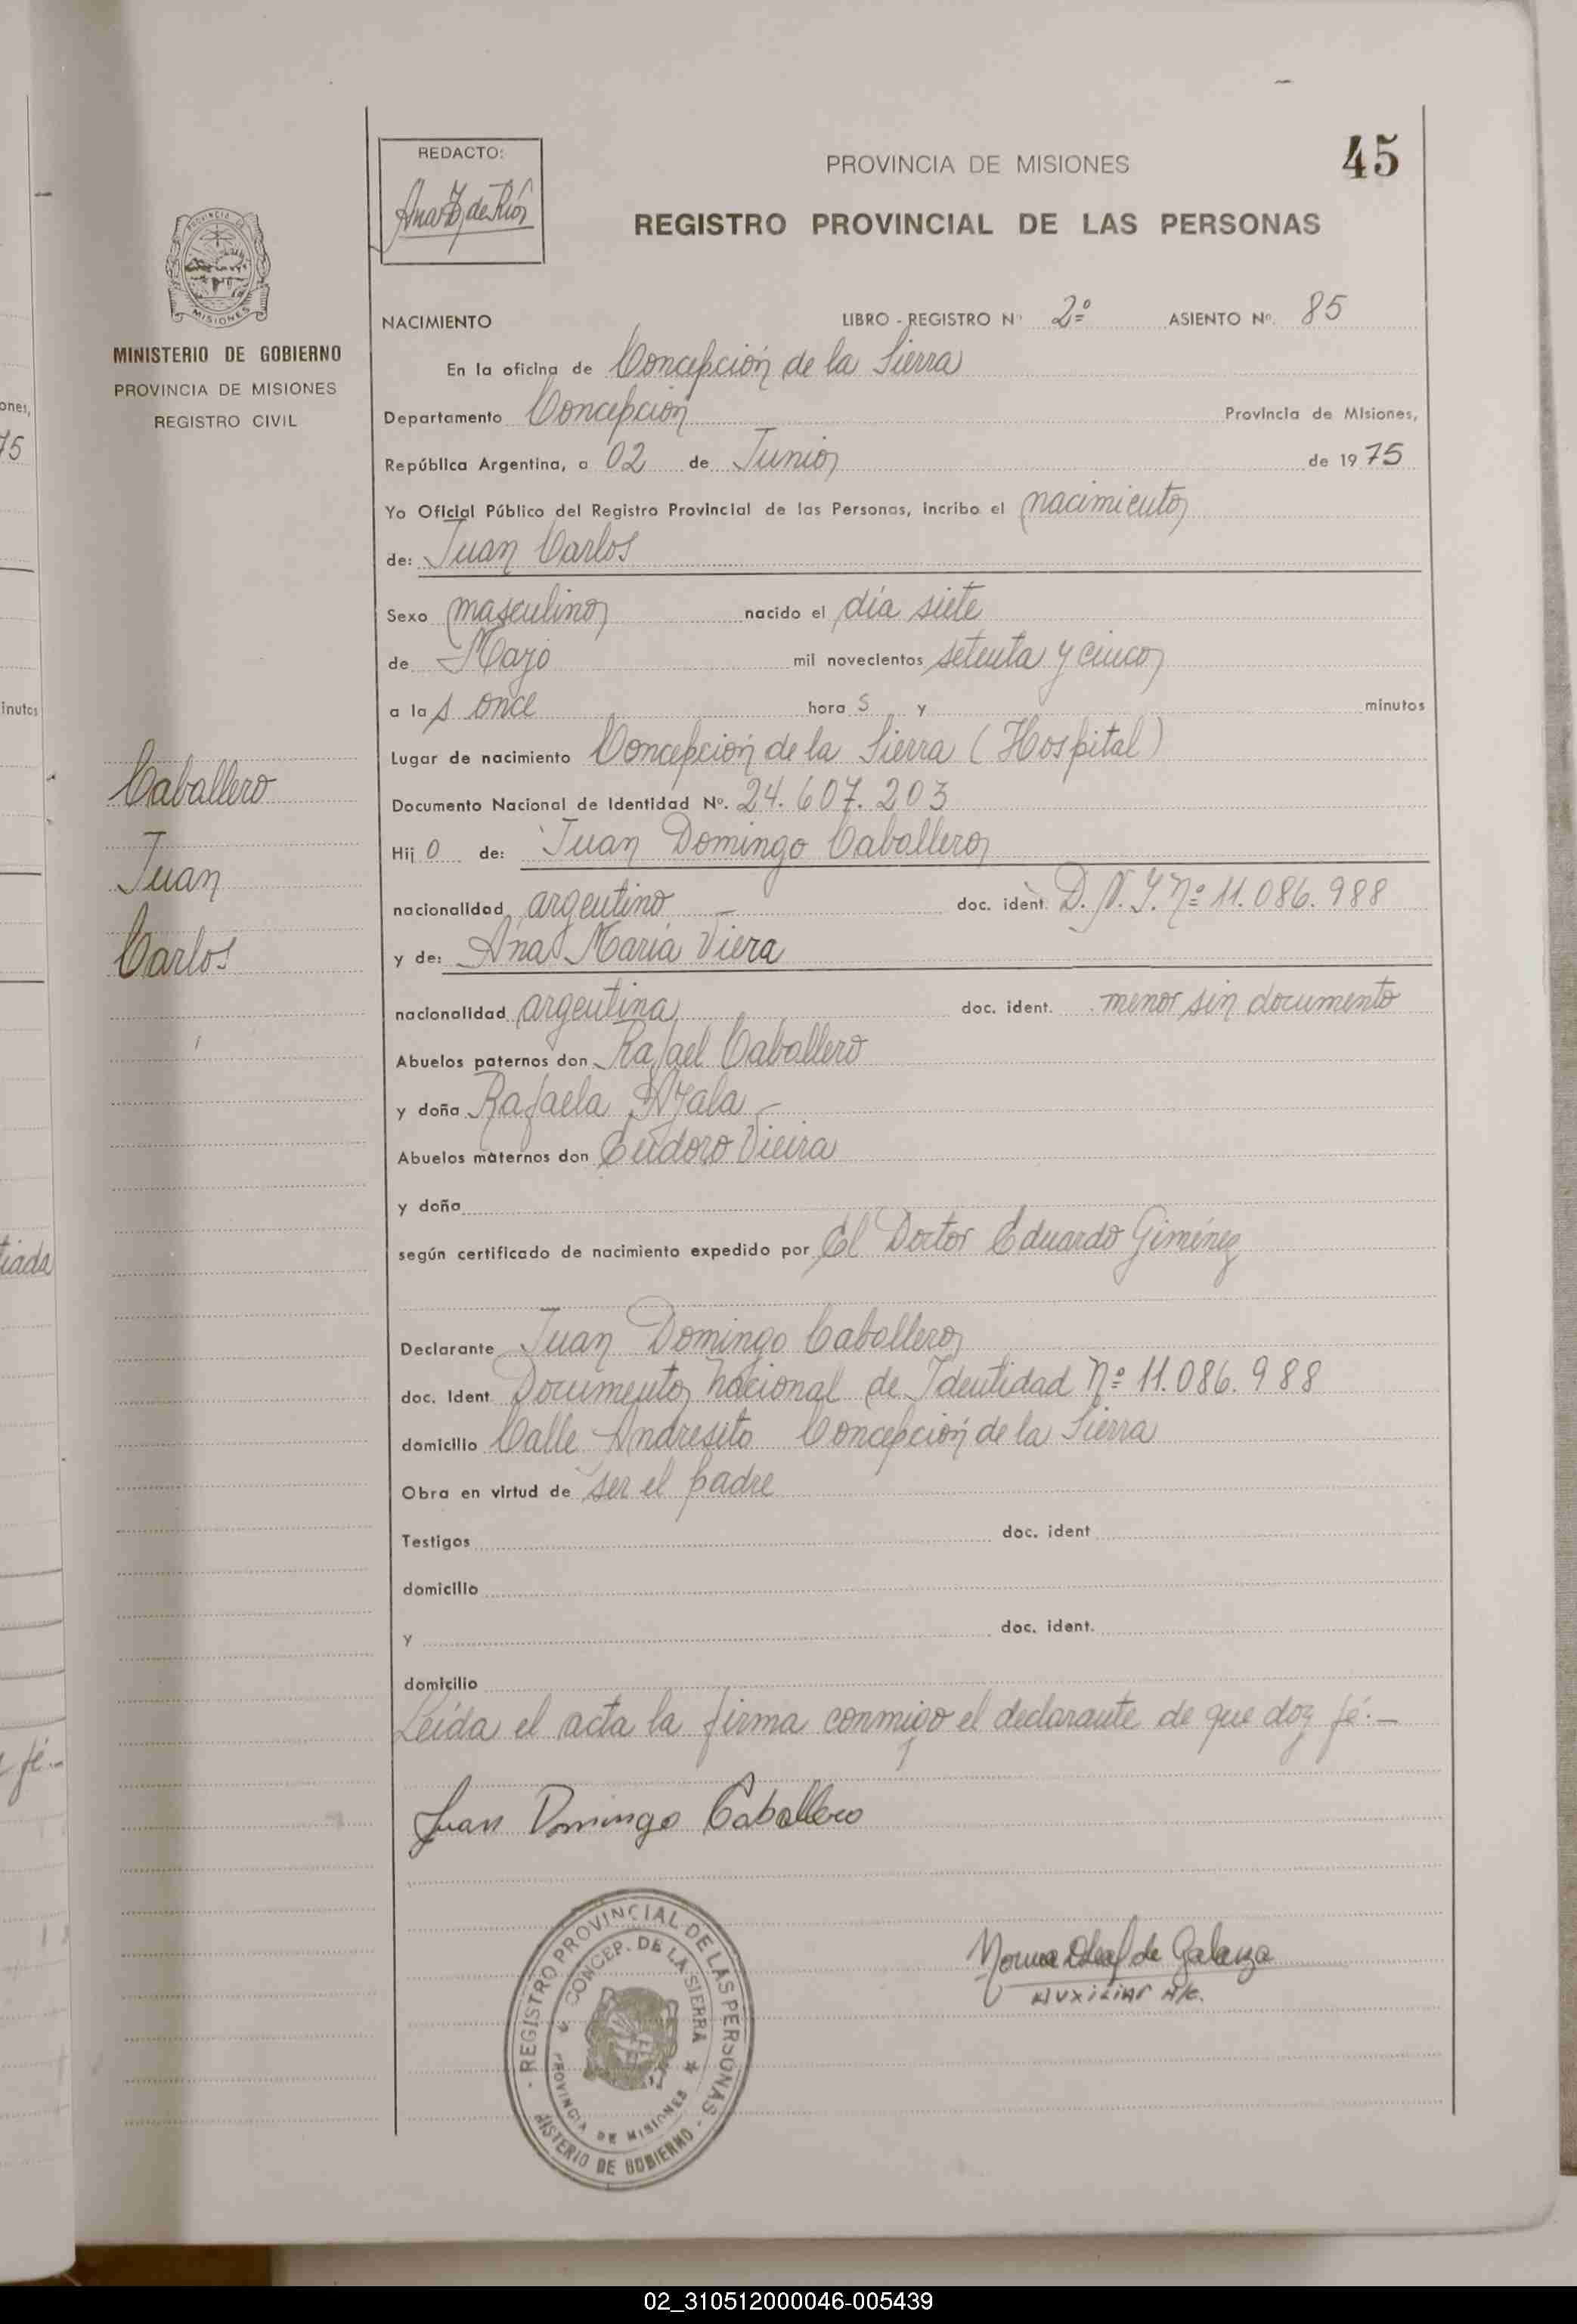 45
REDACTO:
PROVINCIA DE MISIONES
REGISTRO PROVINCIAL DE LAS PERSONAS
PROVINCIA DE
MISIONES
MINISTERIO DE GOBIERNO
PROVINCIA DE MISIONES
REGISTRO CIVIL
Caballero
Juan
Carlos
NACIMIENTO LIBRO - REGISTRO Nº 2º ASIENTO Nº. 85
En la oficina de Concepción de la Sierra
Departamento Concepción Provincia de Misiones,
República Argentina, a 02 de Junio de 1975
Yo Oficial Público del Registro Provincial de las Personas, incribo el nacimiento
de: Juan Carlos
Sexo masculino nacido el día siete
de Mayo mil novecientos setenta y cinco
a las once horas y minutos
Lugar de nacimiento Concepción de la Sierra (Hospital)
Documento Nacional de Identidad Nº. 24.607.203
Hijo de: Juan Domingo Caballero
nacionalidad argentino doc. ident. D.N.I. Nº 11.086.988
y de: Ana María Viera
nacionalidad argentina doc. ident. menor sin documento
Abuelos paternos don Rafael Caballero
y doña Rafaela Ayala
Abuelos maternos don Eudoro Vieira
y doña
según certificado de nacimiento expedido por El Doctor Eduardo Giménez
Declarante Juan Domingo Caballero
doc. Ident Documento Nacional de Identidad Nº 11.086.988
domicilio Calle Andresito Concepción de la Sierra
Obra en virtud de ser el padre
Testigos doc. ident
domicilio
y doc. ident.
domicilio
Leída el acta la firma conmigo el declarante de que doy fé.-
Juan Domingo Caballero
de Galarza
Auxiliar A/c.
REGISTRO PROVINCIAL DE LAS PERSONAS
CONCEP. DE LA SIERRA
PROVINCIA DE MISIONES
NISTERIO DE GOBIERNO
ones,
75
inutos
tiada
fé.-
02_310512000046-005439